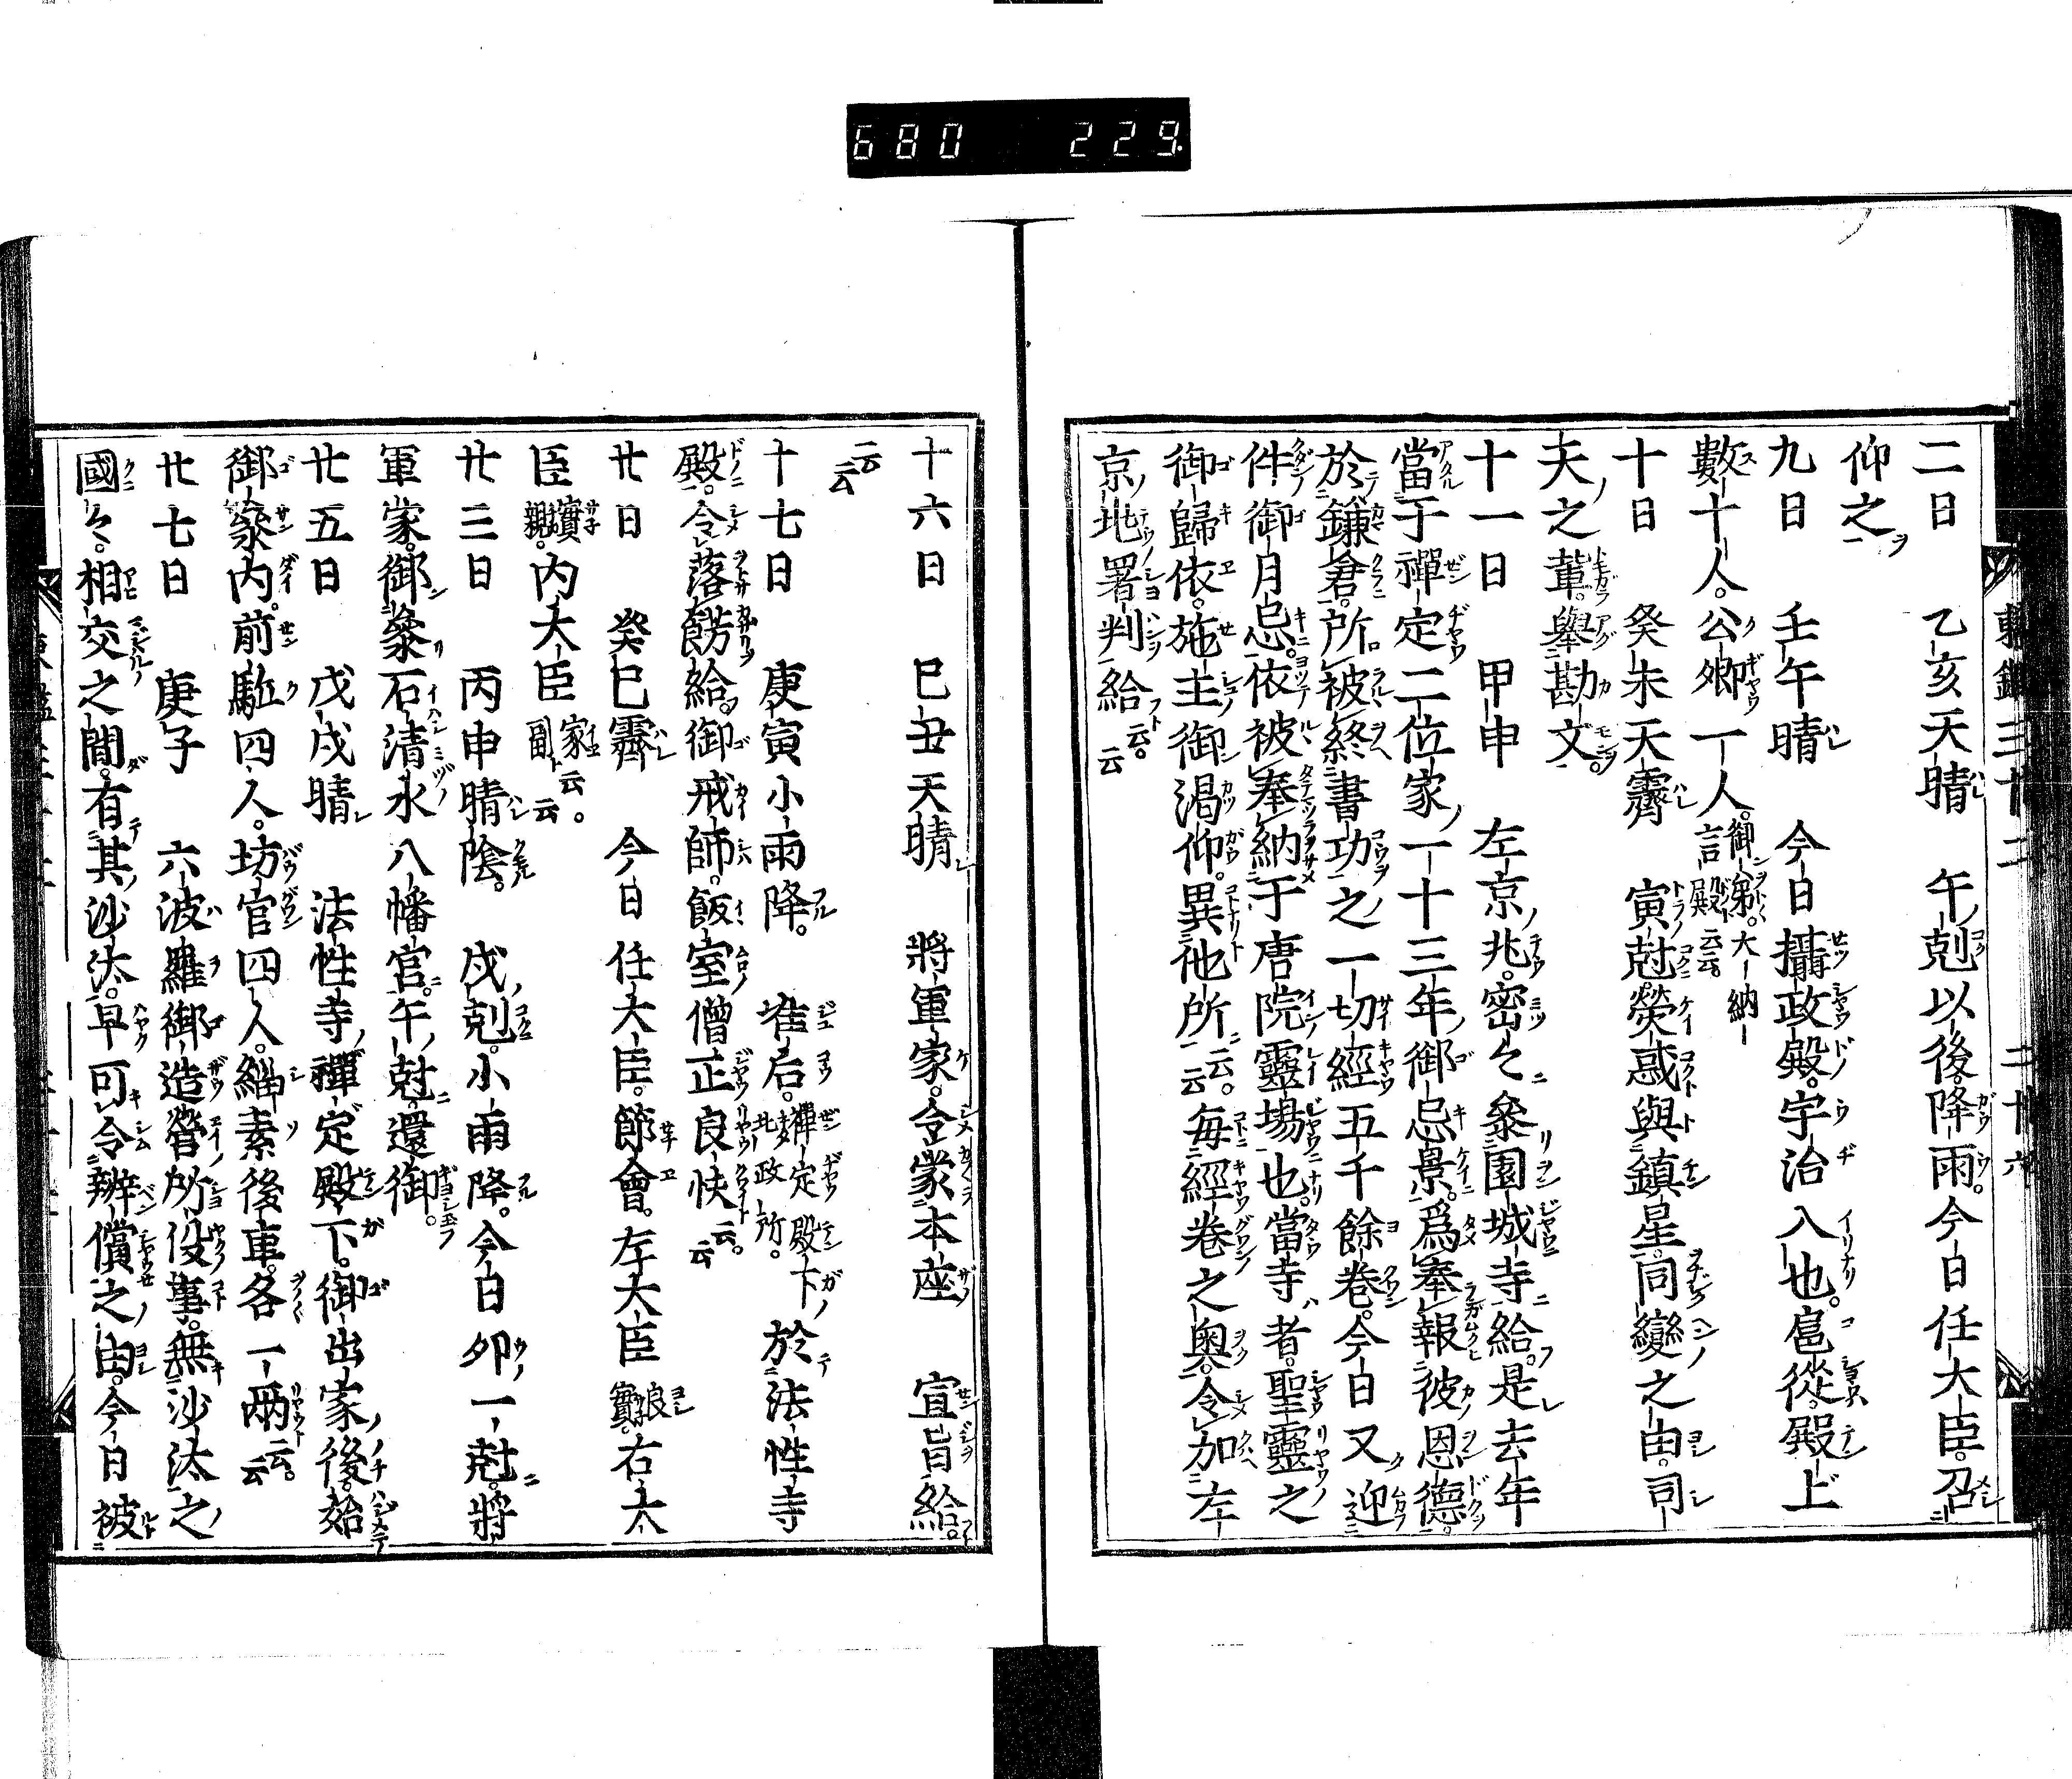 680 229
二日 乙亥天晴 午剋以後降雨。今日任大臣。召
仰之
九日 壬午晴 今日攝政殿。宇治入也。扈從。殿上
數十人。公卿一人。御弟。大納言殿云云。
十日 癸未天霽 寅尅。熒惑與鎮星。同變之由。司
天之輩。擧勘文。
十一日 甲申 左京兆。密々參園城寺給。是去年
當于禪定二位家一十三年御忌景。爲奉報彼恩德。
於鎌倉。所被終書功之一切經五千餘卷。今日又迎
件御月忌。依被奉納于唐院靈場也。當寺者。聖靈之
御歸依。施主御渇仰。異他所云云。毎經卷之奥。令加左
京兆署判給云云。
十六日 巳丑天晴 將軍家。令蒙本座 宣旨給。
云云
十七日 庚寅小雨降。 准后。禪定殿下北政所。於法性寺
殿。令落餝給。御戒師。飯室僧正良快云云。
廿日 癸巳霽 今日任大臣。節會。左大臣良實。右大
臣實親。内大臣家嗣云云。
廿三日 丙申晴陰。 戌剋。小雨降。今日卯一尅。將
軍家。御參石清水八幡宮。午尅。還御。
廿五日 戊戌晴 法性寺禪定殿下。御出家後。始
御參内。前駈四人。坊官四人。緇素後車。各一兩云云。
廿七日 庚子 六波羅御造營所役事。無沙汰之
國々。相交之間。有其沙汰。早可令辨償之由。今日被